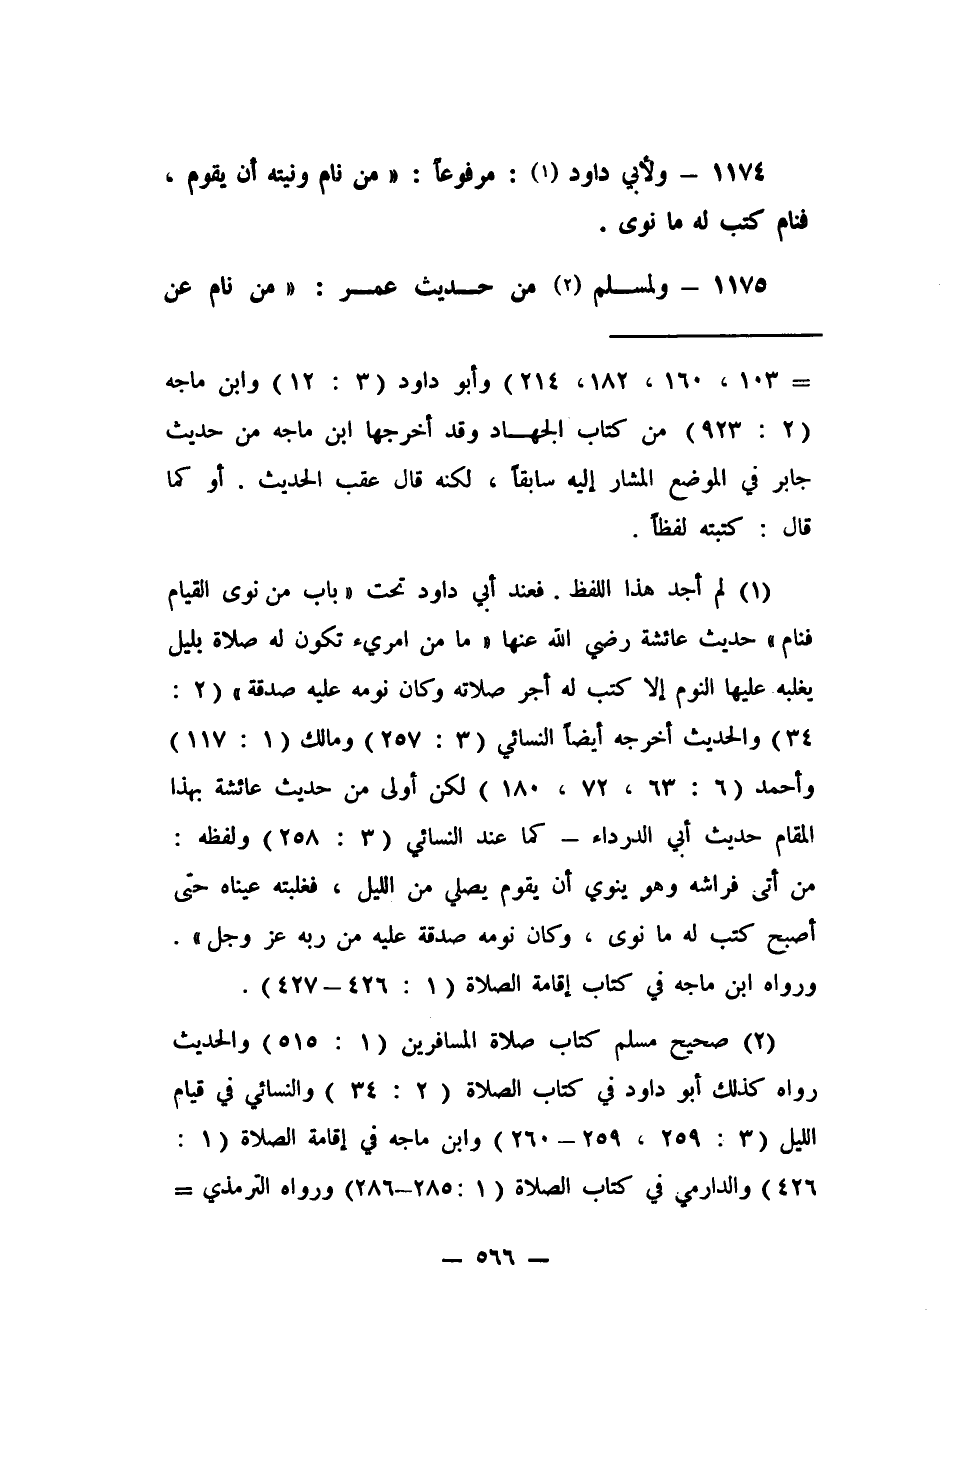 ١١٧٤ – ولأبي داود (١) : مرفوعاً : « من نام ونيته أن يقوم ،
فنام كتب له ما نوى .
١١٧٥ – ولمسلم (٢) من حديث عمر : « من نام عن
= ١٠٣ ، ١٦٠ ، ١٨٢، ٢١٤) وأبو داود (٣ : ١٢) وابن ماجه
(٢ : ٩٢٣) من كتاب الجهاد وقد أخرجها ابن ماجه من حديث
جابر في الموضع المشار إليه سابقاً ، لكنه قال عقب الحديث . أو كما
قال : كتبته لفظاً .
(١) لم أجد هذا اللفظ . فعند أبي داود تحت « باب من نوى القيام
فنام » حديث عائشة رضي الله عنها « ما من امريء تكون له صلاة بليل
يغلبه عليها النوم إلا كتب له أجر صلاته وكان نومه عليه صدقة » (٢ :
٣٤) والحديث أخرجه أيضاً النسائي (٣ : ٢٥٧) ومالك (١ : ١١٧)
وأحمد (٦ : ٦٣ ، ٧٢ ، ١٨٠ ) لكن أولى من حديث عائشة بهذا
المقام حديث أبي الدرداء – كما عند النسائي (٣ : ٢٥٨) ولفظه :
من أتى فراشه وهو ينوي أن يقوم يصلي من الليل ، فغلبته عيناه حتّى
أصبح كتب له ما نوى ، وكان نومه صدقة عليه من ربه عز وجل » .
ورواه ابن ماجه في كتاب إقامة الصلاة (١ : ٤٢٦–٤٢٧) .
(٢) صحيح مسلم كتاب صلاة المسافرين (١ : ٥١٥) والحديث
رواه كذلك أبو داود في كتاب الصلاة (٢ : ٣٤ ) والنسائي في قيام
الليل (٣ : ٢٥٩ ، ٢٥٩–٢٦٠) وابن ماجه في إقامة الصلاة (١ :
٤٢٦) والدارمي في كتاب الصلاة (١ :٢٨٥–٢٨٦) ورواه الترمذي =
– ٥٦٦ –